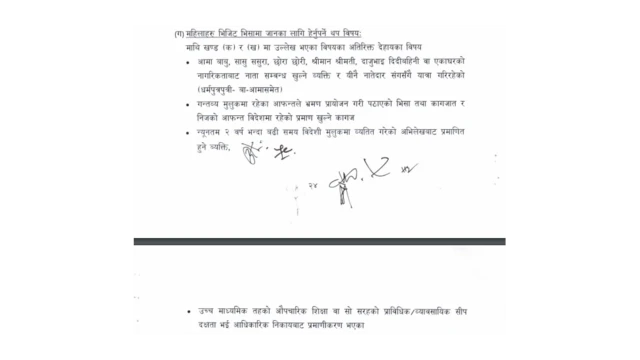 (ग) महिलाहरु भिजिट भिसामा जानका लागि हेर्नुपर्ने थप विषय:
माथि खण्ड (क) र (ख) मा उल्लेख भएका विषयका अतिरिक्त देहायका विषय
• आमा बाबु, सासु ससुरा, छोरा छोरी, श्रीमान श्रीमती, दाजुभाइ दिदीबहिनी वा एकाघरको
नागरिकताबाट नाता सम्बन्ध खुल्ने व्यक्ति र यीनै नातेदार संगसँगै यात्रा गरिरहेको
(धर्मपुत्रपुत्री- वा-आमासमेत)
• गन्तव्य मुलुकमा रहेका आफन्तले भ्रमण प्रायोजन गरी पठाएको भिसा तथा कागजात र
निजको आफन्त विदेशमा रहेको प्रमाण खुल्ने कागज
• न्यूनतम २ वर्ष भन्दा बढी समय विदेशी मुलुकमा व्यतित गरेको अभिलेखबाट प्रमाणित
हुने व्यक्ति,
२४
• उच्च माध्यमिक तहको औपचारिक शिक्षा वा सो सरहको प्राविधिक/व्यावसायिक सीप
दक्षता भई आधिकारिक निकायबाट प्रमाणीकरण भएका